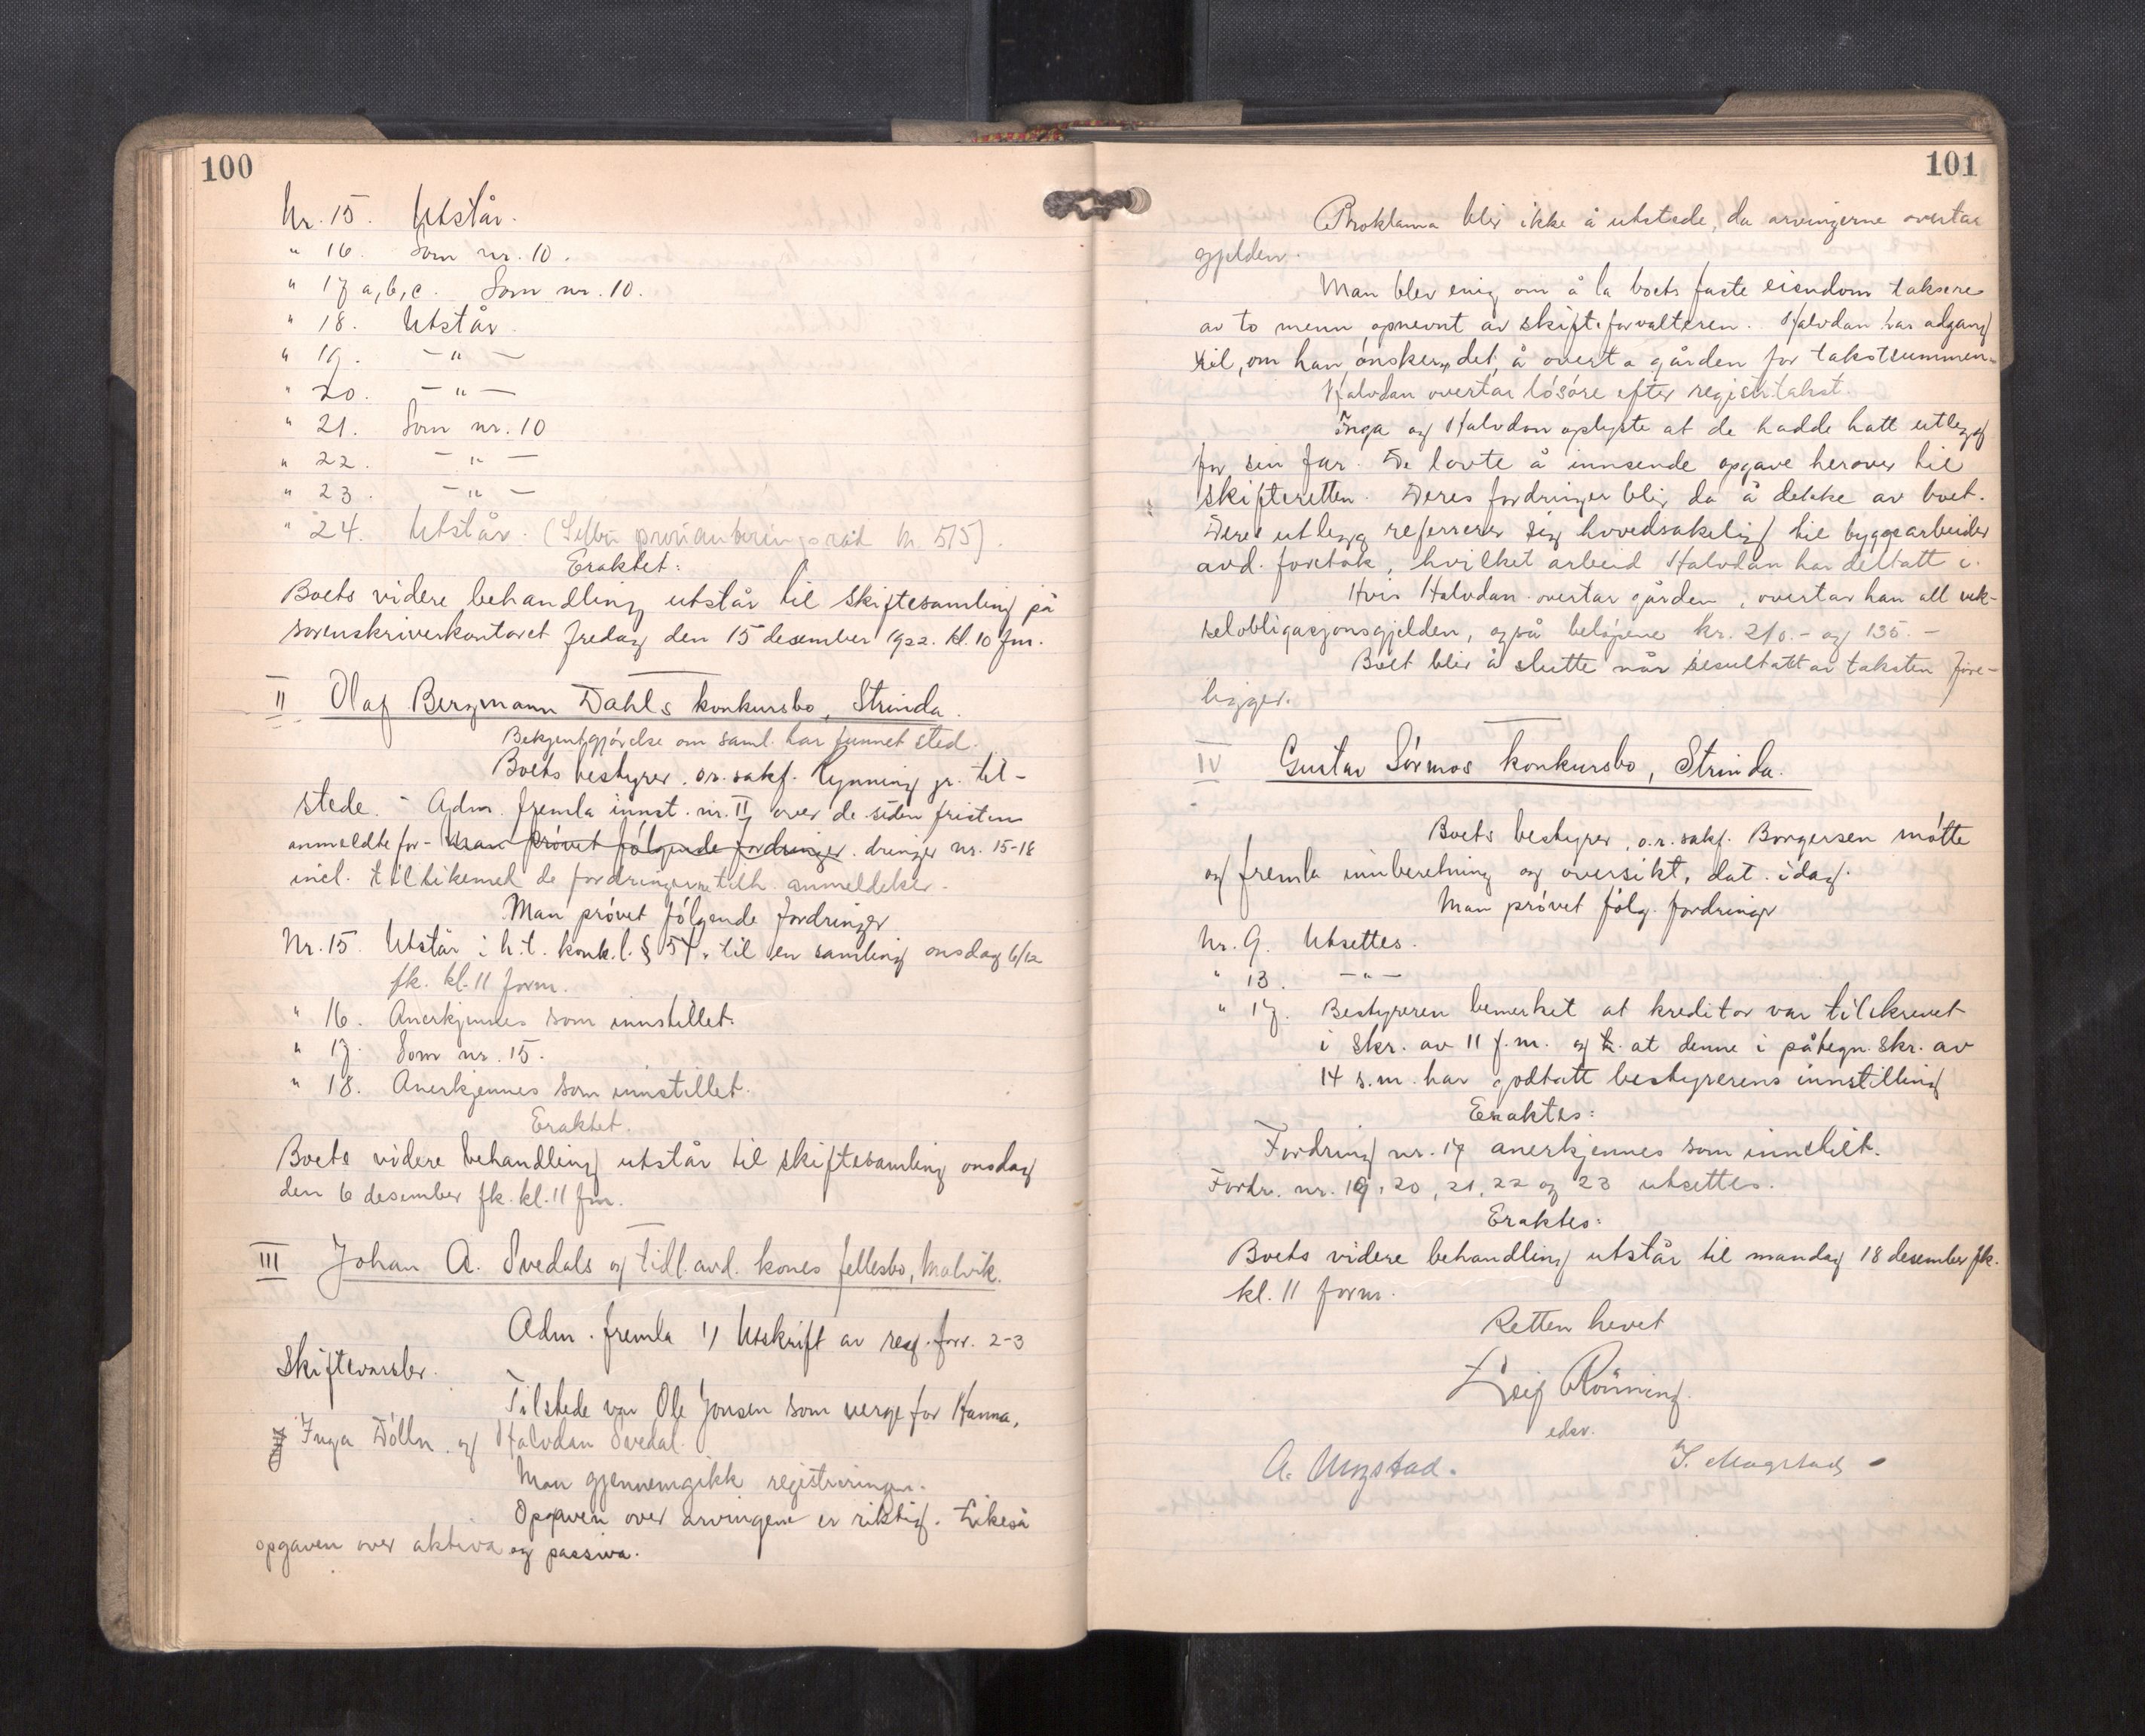 100
Nr. 15. Utstår.
" 16. Som nr. 10.
" 17 a, b, c. Som nr. 10.
" 18. Utstår
" 19. – " –
" 20. – " –
" 21. Som nr. 10
" 22. – " –
" 23. – " –
" 24. Utstår. (Selbu provianteringsråd kr. 515).
Eraktet:
Boets videre behandling utstår til skiftesamling på
sorenskriverkontoret fredag den 15 desember 1922. kl. 10 fm.
II Olaf Bergmann Dahls konkursbo, Strinda.
Bekjentgjørelse om saml. har funnet sted.
Boets bestyrer o.r. sakf. Rynning jr. til-
stede. - Adm. fremla innst. nr. II over de siden fristen
anmeldte for- Man prøvet følgende fordringer. dringer nr. 15-18
incl. tillikemed de fordringerne tilh. anmeldelser.
Man prøvet følgende fordringer
Nr. 15. Utstår i h.t. konk.l. § 54. til en samling onsdag 6/12
fk. kl. 11 form.
" 16. Anerkjennes som innstillet.
" 17. Som nr. 15.
" 18. Anerkjennes som innstillet.
Eraktet.
Boets videre behandling utstår til skiftesamling onsdag
den 6 desember fk. kl. 11 fm.
III Johan A. Svedals og tidl. avd. kones fellesbo, Malvik.
Adm. fremla 1) Utskrift av reg. forr. 2-3
Skiftevarsler.
Tilstede var Ole Jonsen som verge for Hanna,
Inga Dølln og Halvdan Svedal.
Man gjennemgikk registreringen.
Opgaven over arvingene er riktig. Likeså
opgaven over aktiva og passiva.
101
Proklama blir ikke å utstede, da arvingerne overtar
gjelden.
Man blev enig om å la boets faste eiendom taksere
av to menn opnevnt av skifteforvalteren. Halvdan har adgang
til, om han ønsker det, å overta gården for takstsummen.
Halvdan overtar løsøre efter registr.takst.
Inga og Halvdan oplyste at de hadde hatt utlegg
for sin far. De lovte å innsende opgave herover til
skifteretten. Deres fordringer blir da å dekke av boet.
Deres utlegg referrerer sig hovedsakelig til byggearbeider
avd. foretok, hvilket arbeid Halvdan har deltatt i.
Hvis Halvdan overtar gården, overtar han all vek-
selobligasjonsgjelden, også beløpene kr. 210.- og 135.-
Boet blir å slutte når resultatet av taksten fore-
ligger.
IV Gustav Sørmos konkursbo, Strinda.
Boets bestyrer, o.r. sakf. Borgersen møtte
og fremla innberetning og oversikt, dat. idag.
Man prøvet følg. fordringer
Nr. 9. Utsettes.
" 13. – " –
" 17. Bestyreren bemerket at kreditor var tilskrevet
i skr. av 11 f.m. og at denne i påtegn. skr. av
14 s.m. har godtatt bestyrerens innstilling
Eraktes:
Fordring nr. 17 anerkjennes som innstilt.
Fordr. nr. 19, 20, 21, 22 og 23 utsettes.
Eraktes:
Boets videre behandling utstår til mandag 18 desember fk.
kl. 11 form.
Retten hevet
Leif Rönning
edsv.